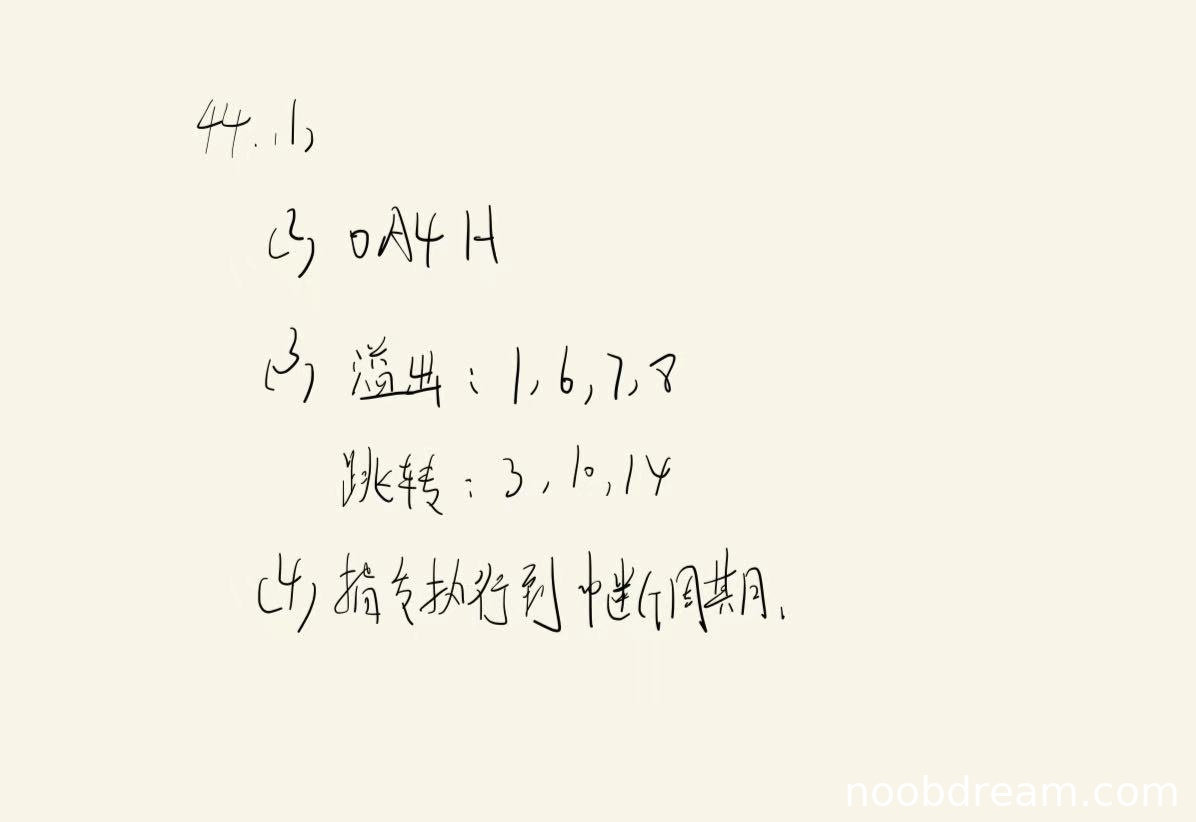 44. (1)
(2) 0A4H
(3) 溢出：1,6,7,8
跳转：3,10,14
(4) 指令执行到中断周期.
noobdream.com